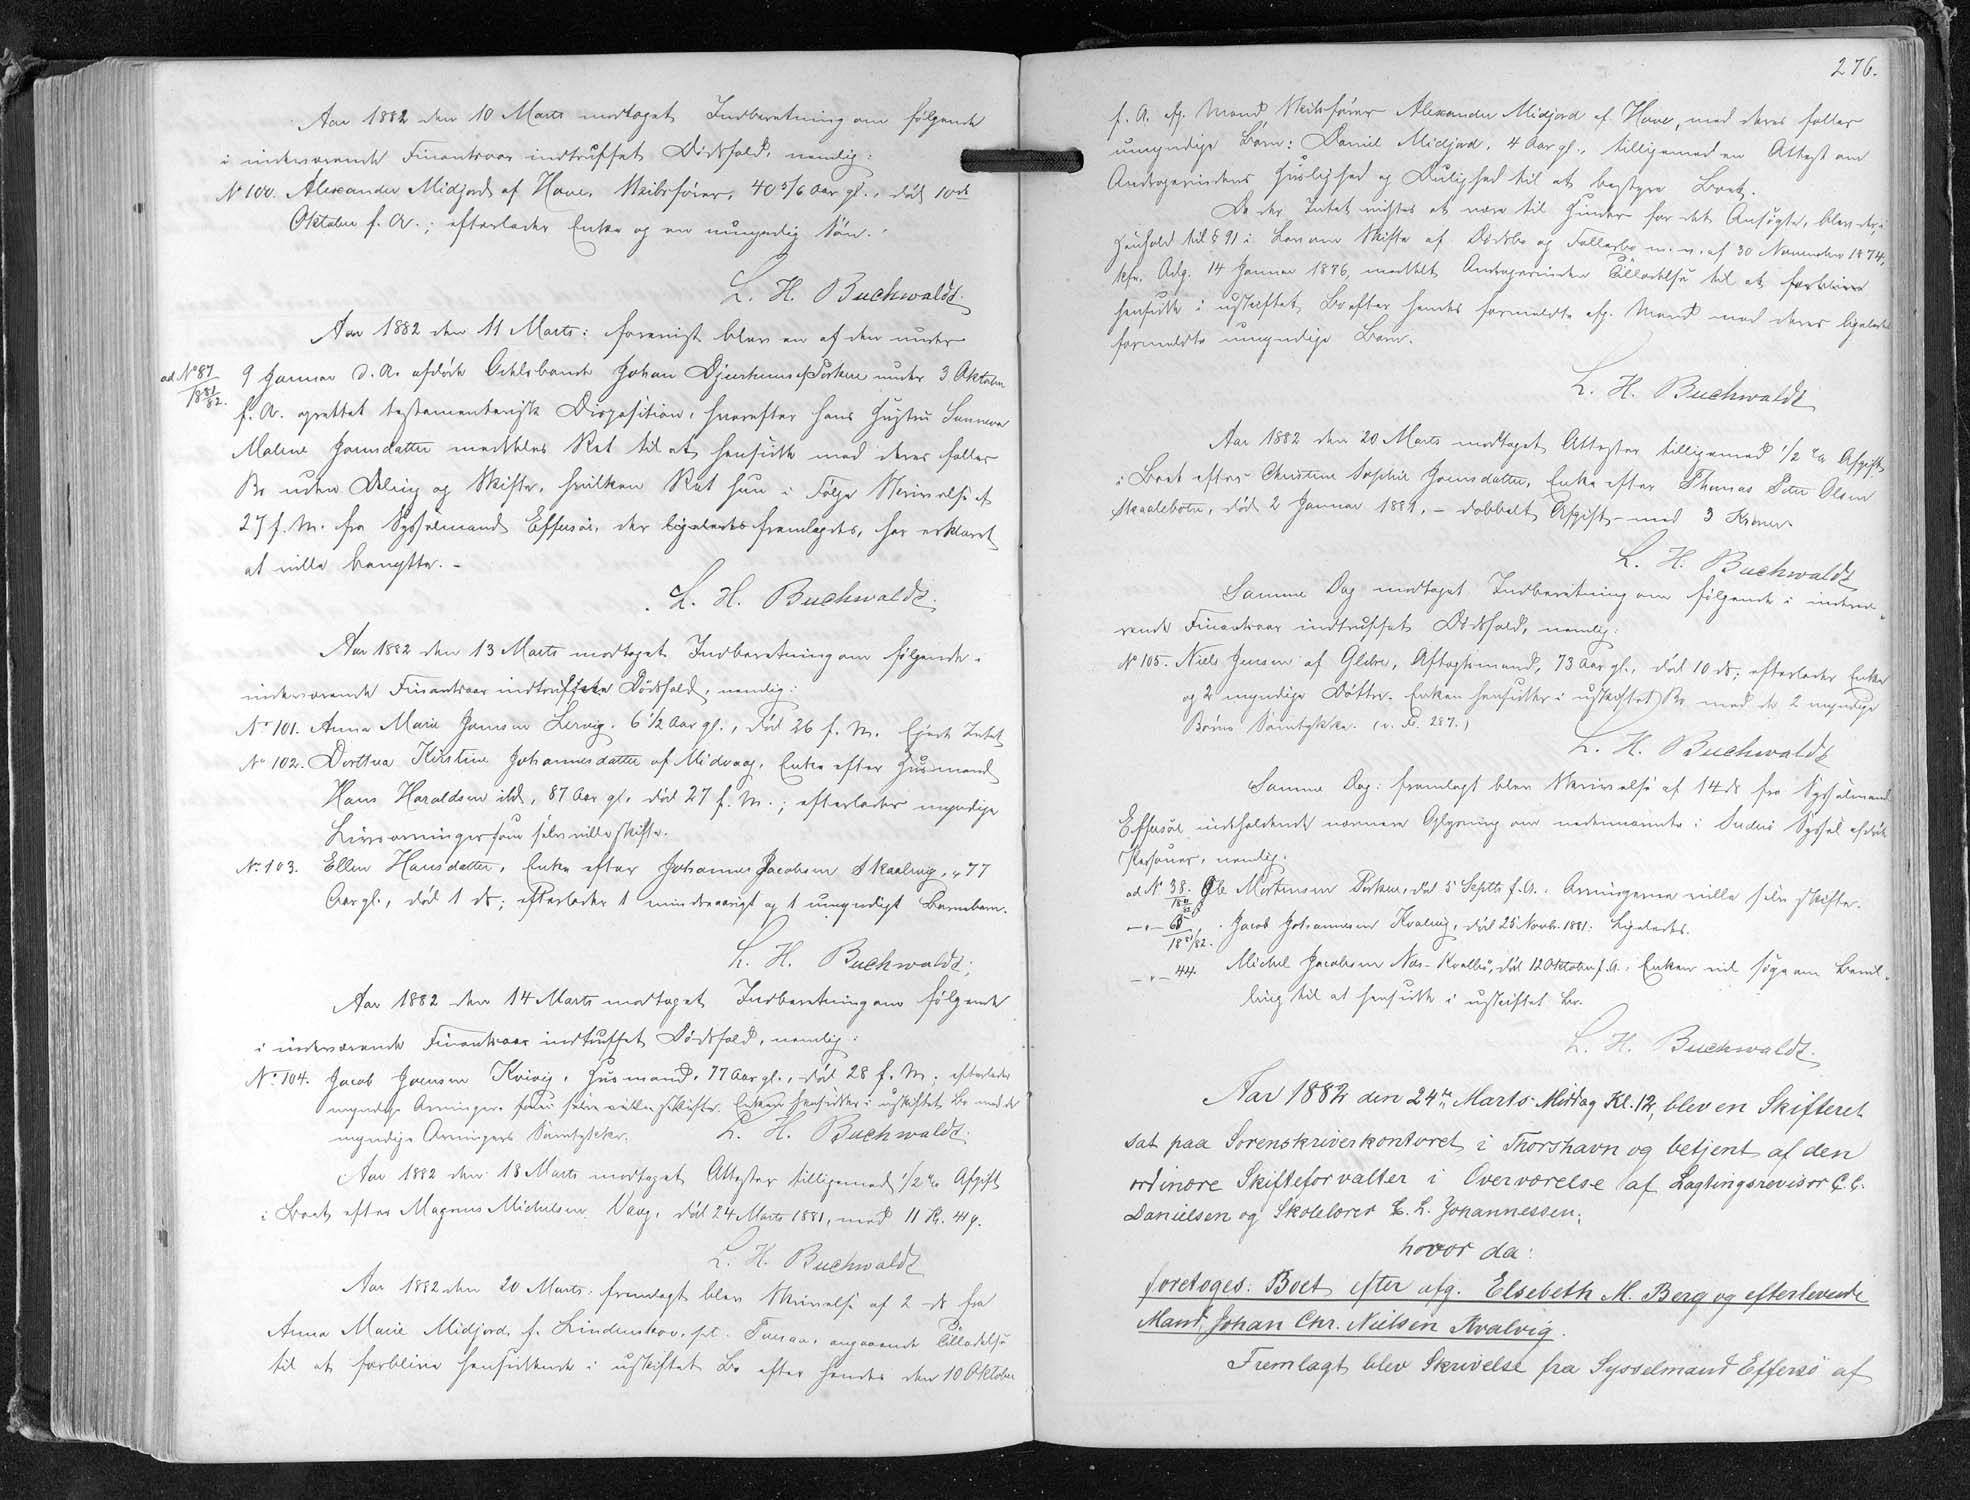 Aar 1882 den 10 Marts modtaget Indberetning om følgende
i indeværende Finantsaar indtruffet Dødsfald, nemlig:
No 100. Alexander Midjord af Hove, Skibsfører, 40 5/6 Aar gl., død 10de
Oktober f. A.; efterlader Enke og en umyndig Søn.
L. H. Buchwaldt.
Aar 1882 den 11 Marts: forevist blev en af den under
ad No 87 1881/82. 9 Januar d. A. afdøde Odelsbonde Johan Djurhuus af Porkere under 3 Oktober
f. A. oprettet testamentarisk Disposition, hvorefter hans Hustru Sunneva
Malene Joensdatter meddeles Ret til at hensidde med deres fælles
Bo uden Deling og Skifte, hvilken Ret hun i Følge Skrivelse af
27 f. M. fra Sysselmand Effersøe, der ligeledes fremlagdes, har erklæret
at ville benytte. -
L. H. Buchwaldt.
Aar 1882 den 13 Marts modtaget Indberetning om følgende i
indeværende Finantsaar indtrufne Dødsfald, nemlig:
No 101. Anna Marie Joensen Lervig, 6 1/2 Aar gl., død 26 f. M. Ejede Intet
No 102. Dorthea Kirstine Johannesdatter af Midvaag, Enke efter Husmand
Hans Haraldsen ibd., 87 Aar gl., død 27 f. M.; efterlader myndige
Livsarvinger som selv ville skifte.
No 103. Ellen Hansdatter, Enke efter Johannes Jacobsen Skaaling, 77
Aar gl., død 1 ds; efterlader 1 mindreaarigt og 1 umyndigt Barnebarn.
L. H. Buchwaldt.
Aar 1882 den 14 Marts modtaget Indberetning om følgende
i indeværende Finantsaar indtruffet Dødsfald, nemlig:
No 104. Jacob Joensen Kvivig, Husmand, 77 Aar gl., død 28 f. M.; efterlader
myndige Arvinger, som selv ville skifte. Enken hensidder i uskiftet Bo med de
myndige Arvingers Samtykke. L. H. Buchwaldt.
Aar 1882 den 18 Marts modtaget Attester tilligemed 1/2 % Afgift
i Boet efter Magnus Michelsen Vaag, død 24 Marts 1881, med 11 Kr. 41 Ø.
L. H. Buchwaldt
Aar 1882 den 20 Marts: fremlagt blev Skrivelse af 2 ds fra
Anna Marie Midjord, f. Lindenskov, pt. angaaende Tilladelse
til at forblive hensiddende i uskiftet Bo efter hendes den 10 Oktober
276.
f. A. afg. Mand, Skibsfører Alexander Midjord af Hove, med deres fælles
umyndige Barn: Daniel Midjord, 4 Aar gl., tilligemed en Attest om
Andragerindens Huslighed og Dulighed til at bestyre Boet.
Da der Intet vidstes at være til Hinder for det Ansøgte, blev der, i
Henhold til § 91 i Lov om Skifte af Dødsbo og Fællesbo m. v. af 30 November 1874,
kfr. Adg. 14 Januar 1876, meddelt Andragerinden Tilladelse til at forblive
hensidde i uskiftet Bo efter hendes formeldte afg. Mand med deres ligeledes
formeldte umyndige Barn.
L. H. Buchwaldt
Aar 1882 den 20 Marts modtaget Attester tilligemed 1/2 % Afgift
i Boet efter Christine Sophie Joensdatter, Enke efter Thomas Peter Olsen
Skaalebotn, død 2 Januar 1881, - dobbelt Afgift - med 3 Kroner.
L. H. Buchwaldt
Samme Dag modtaget Indberetning om følgende i indevæ-
rende Finantsaar indtruffet Dødsfald, nemlig:
No 105. Niels Jensen af Glibre, Aftægtsmand, 73 Aar gl., død 10 ds; efterlader Enke
og 2 myndige Døttre. Enken hensidder i uskiftet Bo med de 2 myndige
Børns Samtykke. (v. Fo. 287.)
L. H. Buchwaldt
Samme Dag: fremlagt blev Skrivelse af 14 ds fra Sysselmand
Effersøe indeholdende nærmere Oplysning om nedennævnte i Suderø Syssel afdøde
Personer, nemlig:
ad No 38. 1881/82 Ole Mortensen Porkere, død 5 Septbr f. A.: Arvingerne ville selv skifte.
- " - 65 1881/82. Jacob Johannesen Kvalvig, død 25 Novbr. 1881: Ligeledes.
- " - 44. Michel Jacobsen Næs - Kvalbø, død 12 Oktober f. A.: Enken vil søge om Bevil-
ling til at hensidde i uskiftet Bo.
L. H. Buchwaldt.
Aar 1882 den 24de Marts Middag Kl. 12, blev en Skifteret
sat paa Sorenskriverkontoret i Thorshavn og betjent af den
ordinære Skifteforvalter i Overværelse af Lagtingsrevisor C. C.
Danielsen og Skolelærer E. L. Johannessen;
hvor da:
foretoges: Boet efter afg. Elsebeth M. Berg og efterlevende
Mand, Johan Chr. Nielsen Kvalvig.
Fremlagt blev Skrivelse fra Sysselmand Effersø af